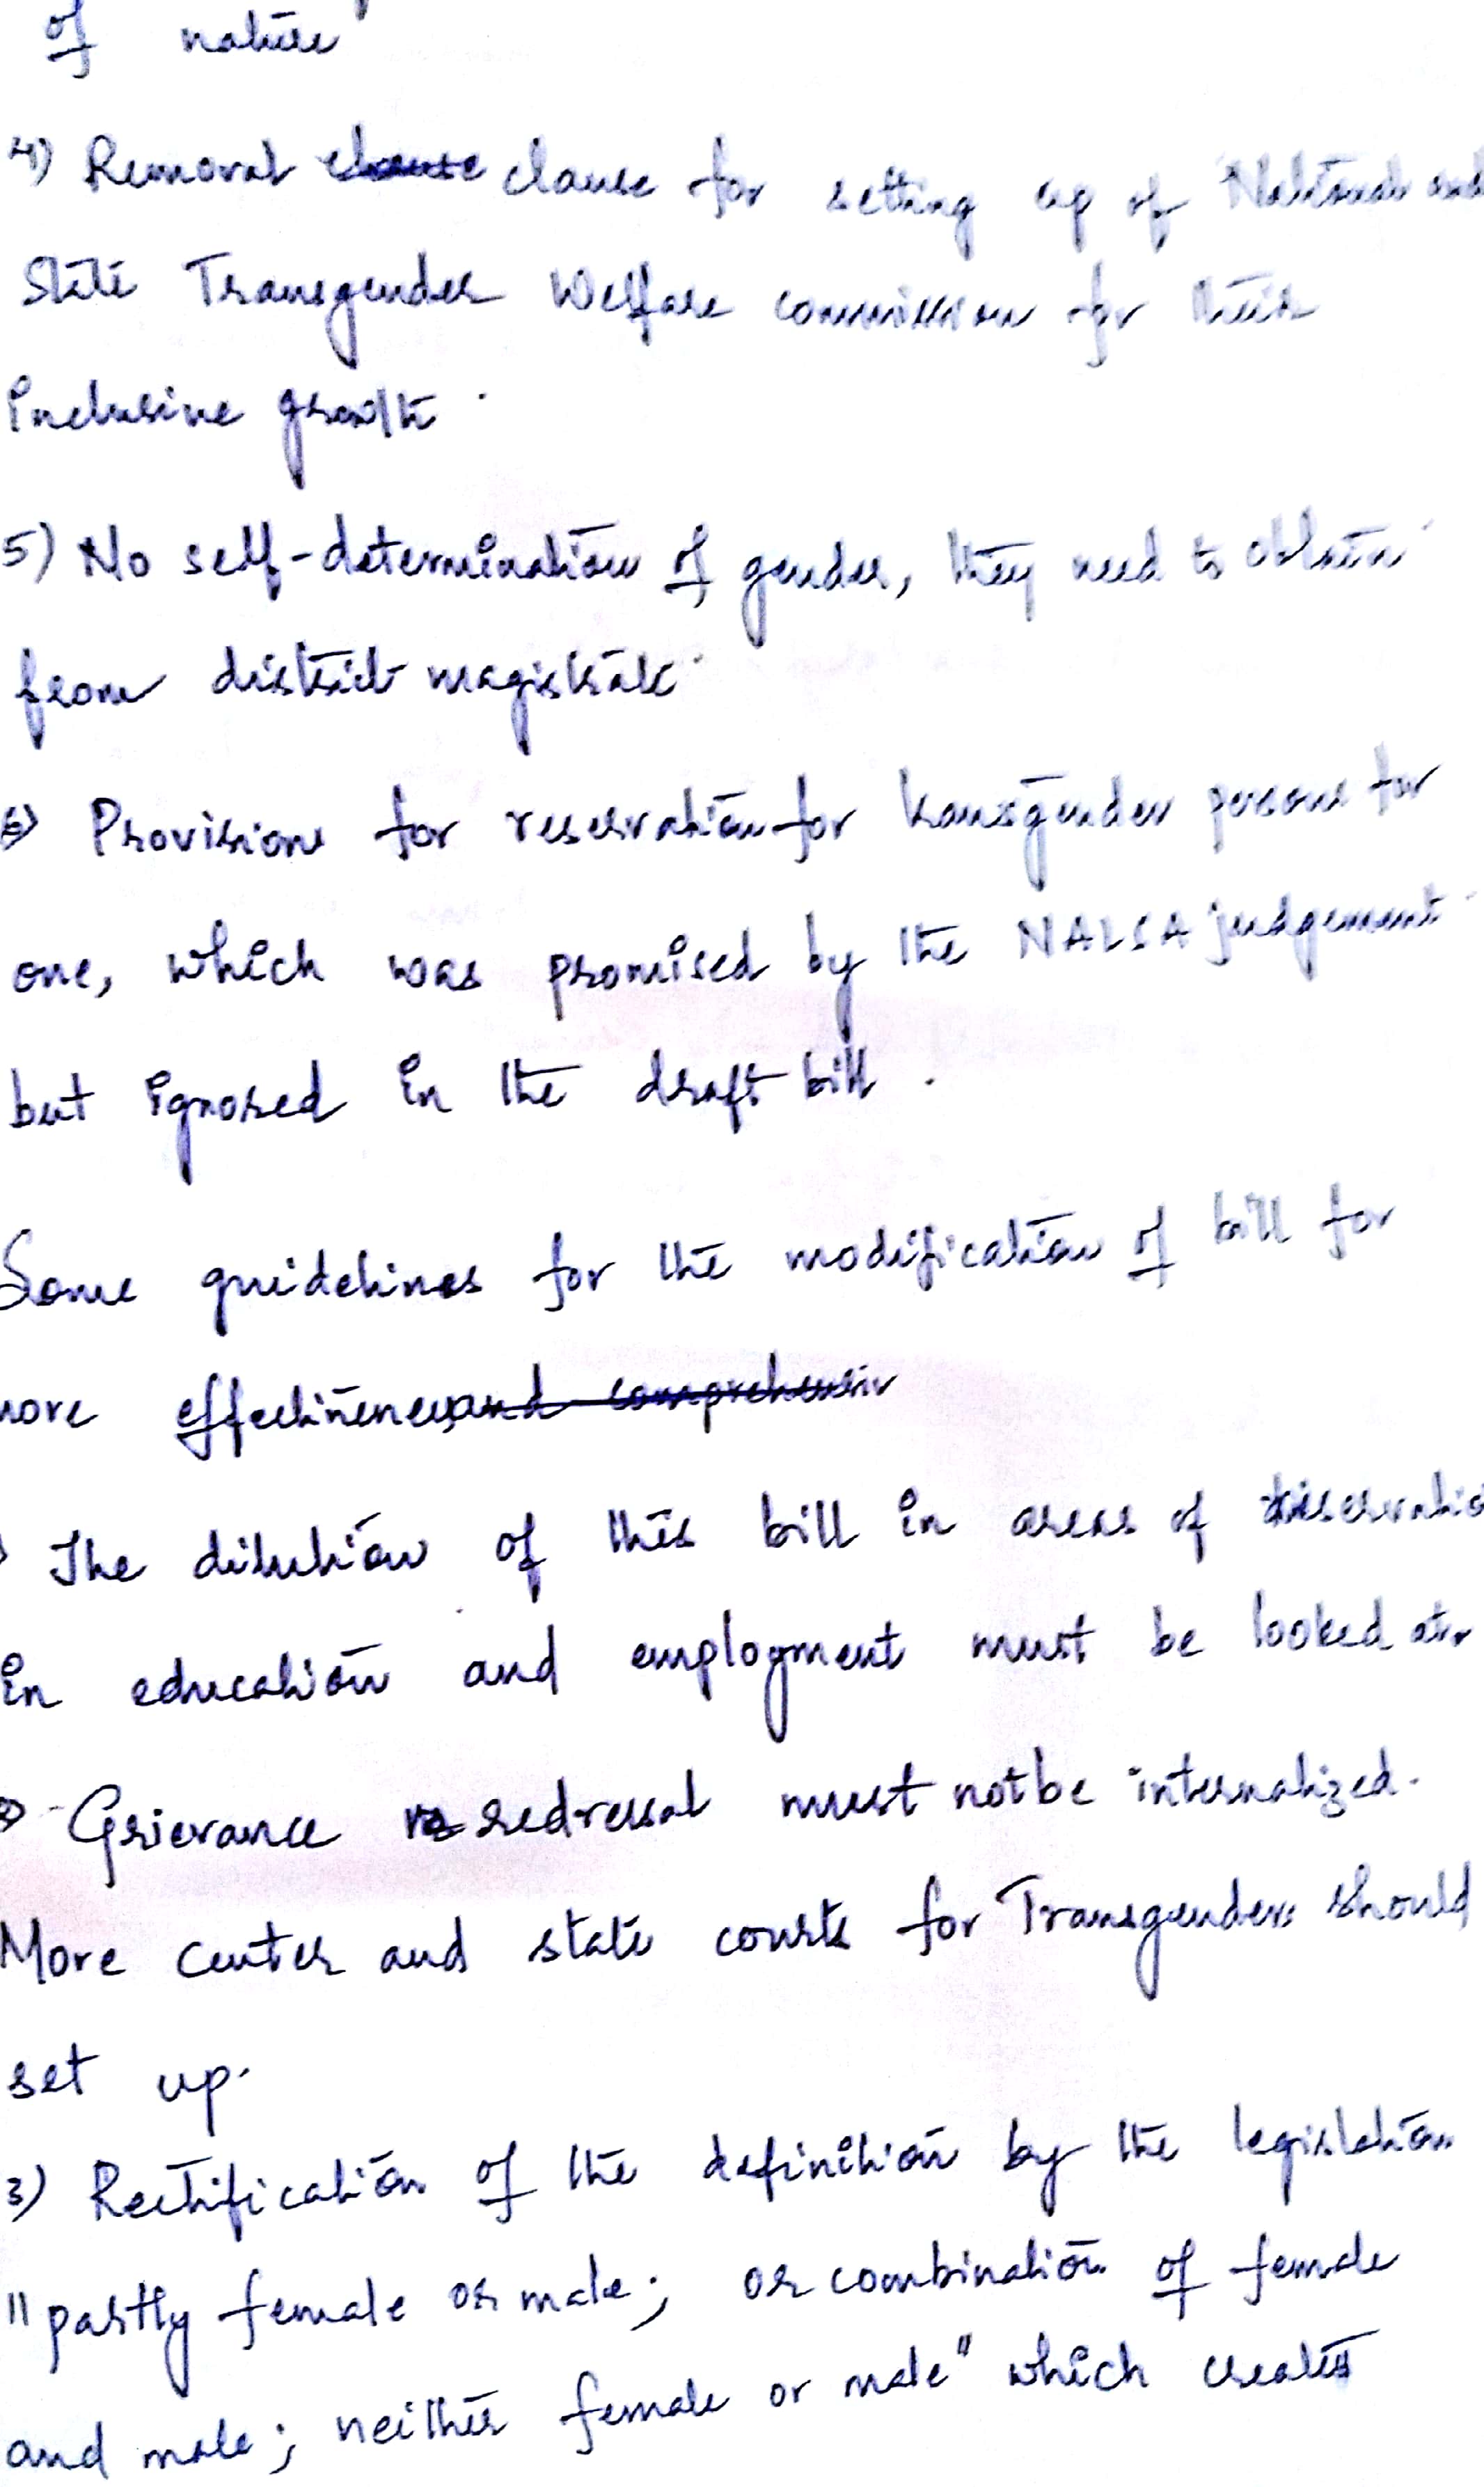 of nature"
4) Removal clause clause for setting up of National and
State Transgender Welfare commission for their
inclusive growth.
5) No self-determination of gender, they need to obtain
from district magistrate.
6) Provisions for reservation for transgender persons for
one, which was promised by the NALSA judgement
but ignored in the draft bill.
Some guidelines for the modification of bill for
more effectiveness and comprehensiv
The dilution of this bill in areas of reservatio
in education and employment must be looked at.
Grievance redressal must not be internalized.
More center and state courts for Transgenders should
set up.
3) Rectification of the definition by the legislation
"partly female or male; or combination of female
and male; neither female or male" which creates